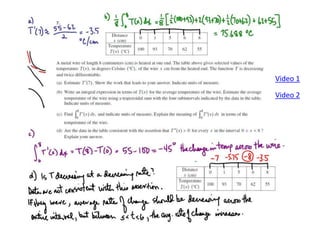 a) T'(7) ≈ 55-62 / 2 = -3.5 °C/cm
b) 1/8 ∫₀⁸ T(x) dx = 1/8 [ 1/2(100+93)·1 + 4/2(93+70) + 1/2(70+62) + 2/2(62+55)
= 75.688 °C
Distance x (cm) 0 1 5 6 8
Temperature T(x) (°C) 100 93 70 62 55
A metal wire of length 8 centimeters (cm) is heated at one end. The table above gives selected values of the
temperature T(x), in degrees Celsius (°C), of the wire x cm from the heated end. The function T is decreasing
and twice differentiable.
(a) Estimate T'(7). Show the work that leads to your answer. Indicate units of measure.
(b) Write an integral expression in terms of T(x) for the average temperature of the wire. Estimate the average
temperature of the wire using a trapezoidal sum with the four subintervals indicated by the data in the table.
Indicate units of measure.
(c) Find ∫₀⁸ T'(x) dx, and indicate units of measure. Explain the meaning of ∫₀⁸ T'(x) dx in terms of the
temperature of the wire.
(d) Are the data in the table consistent with the assertion that T''(x) > 0 for every x in the interval 0 < x < 8 ?
Explain your answer.
Video 1
Video 2
c) ∫₀⁸ T'(x) dx = T(8) - T(0) = 55 - 100 = -45° the change in temp across the wire.
-7 -5.75 -8 -3.5
d) Is T decreasing at a decreasing rate?
Distance x (cm) 0 1 5 6 8
Temperature T(x) (°C) 100 93 70 62 55
Data are not consistent with this assertion.
If they were, average rate of change should be decreasing across the
entire interval, but between 5 < t < 6, the avg. rate of change increases.